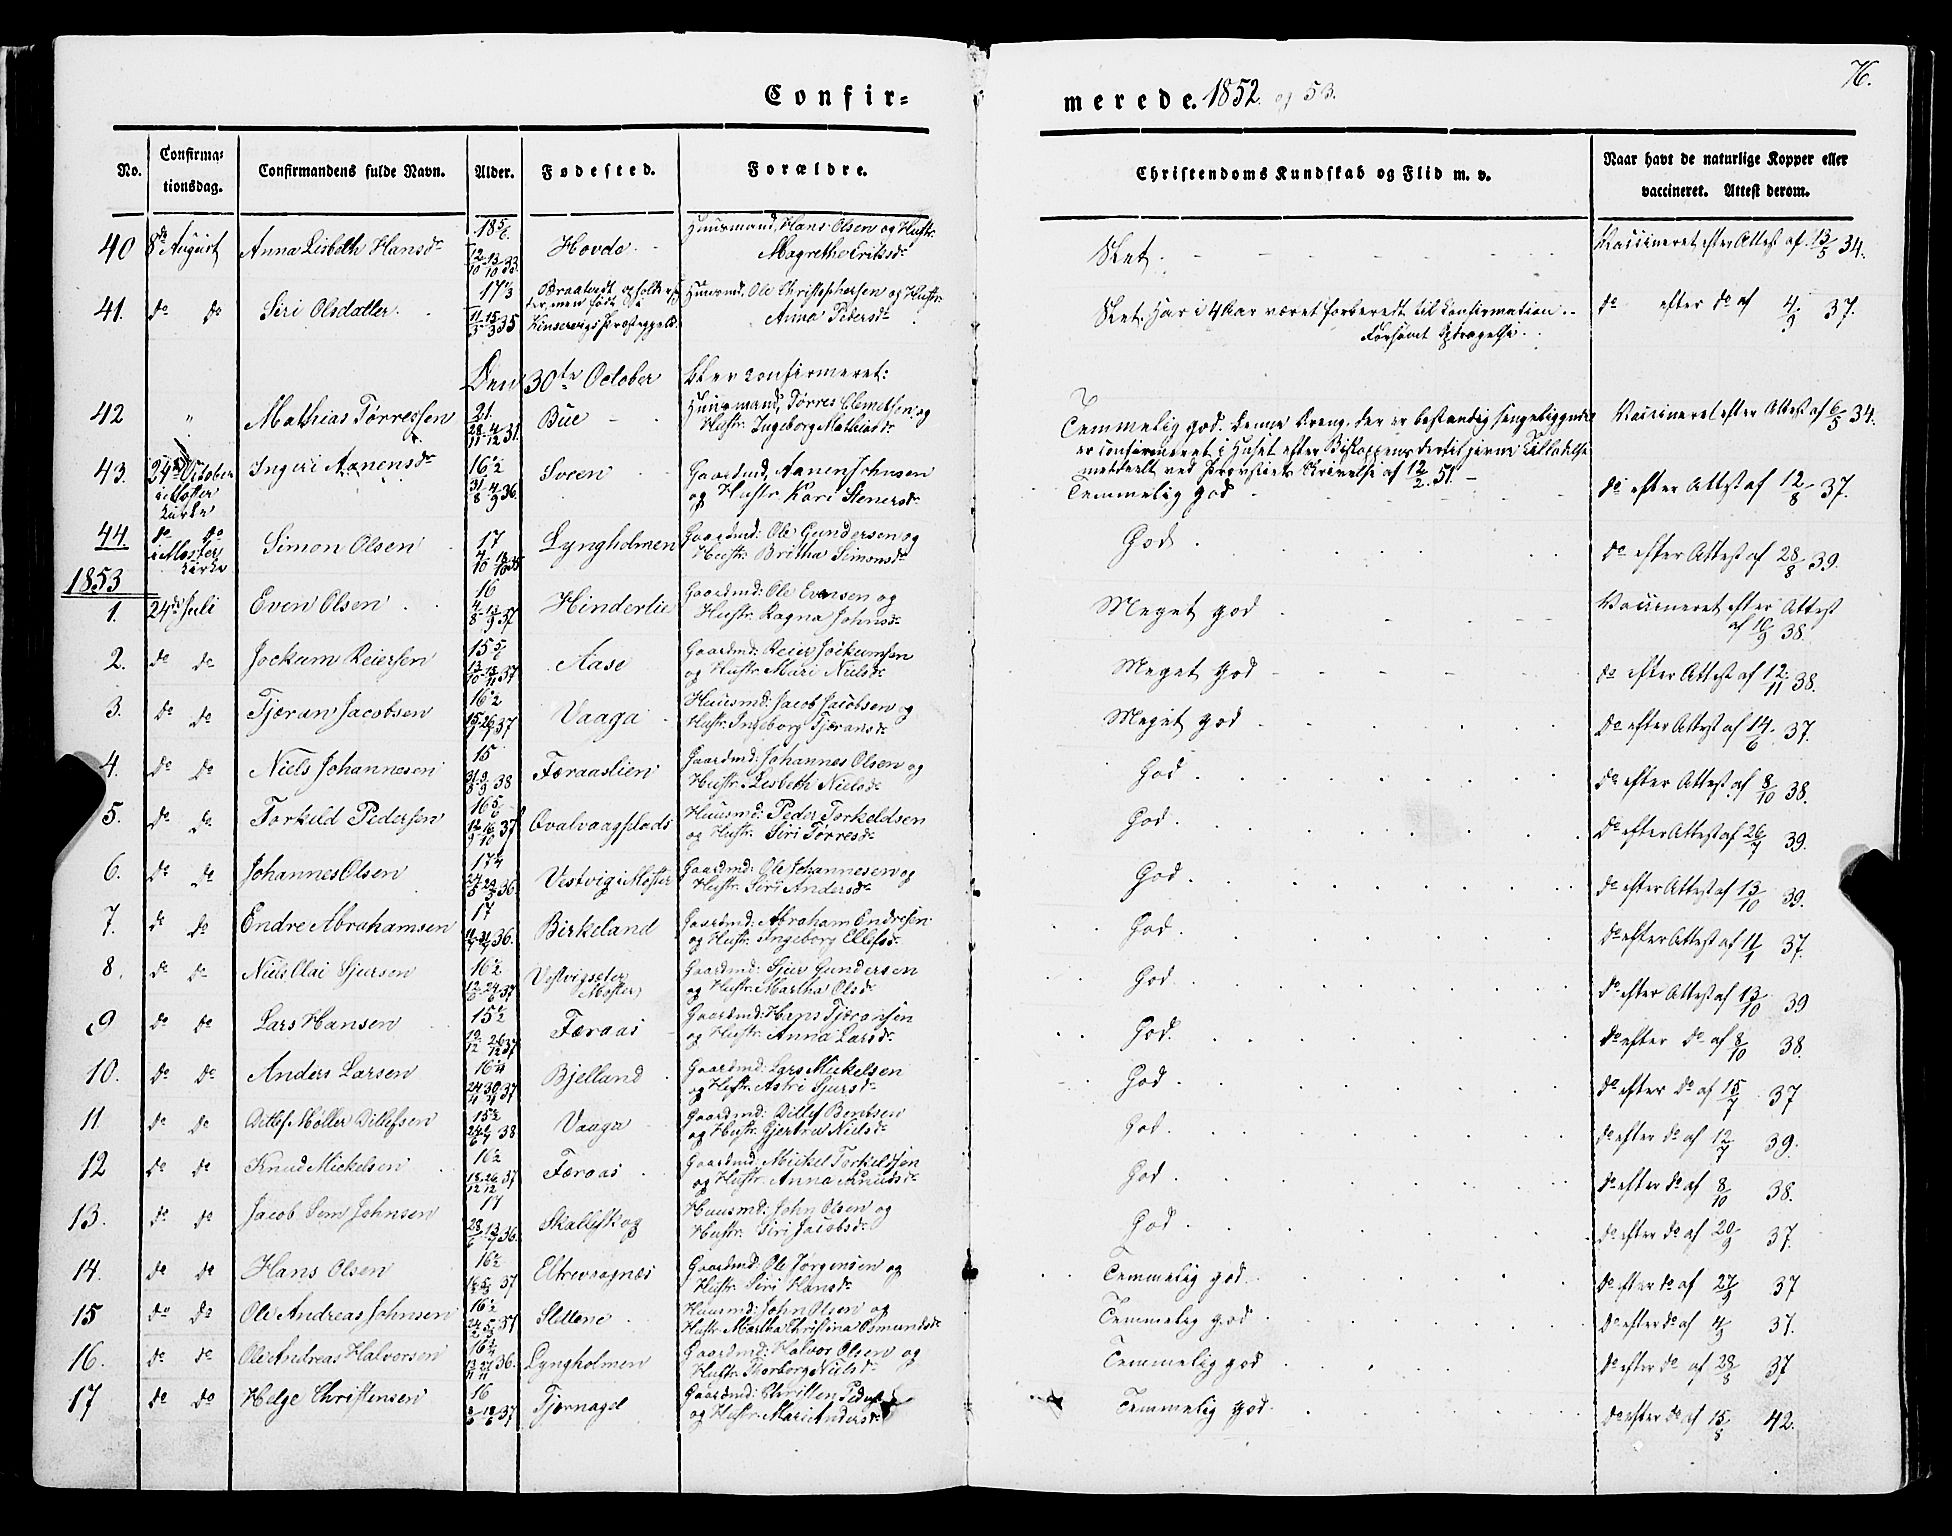 76.
Confir-
merede. 1852 og 53.
No.
Confirma-
tionsdag.
Confirmandens fulde Navn.
Alder.
Fødested.
Forældre.
Christendoms Kundskab og Flid m. v.
Naar havt de naturlige Kopper eller
vaccineret. Attest derom.
40 8de August Anna Lisbeth Hansdr 18 5/6 12/10 - 13/10 33. Hovde Huusmand, Hans Olsen og Hustr:
Magrethe Eriksdr Slet. Vaccineret efter Attest af 13/5 34.
41. do do Siri Olsdatter. 17 1/3 11/3 15/3 35 Huusmd, Ole Christophersen og Hustr:
Anna Pedersdr Slet. Har i 4 Aar været forberedt til Confirmation.
do efter do af 4/9 37.
Den 30te October blev confirmeret:
42 " Mathias Tørresen 21. 28/11 4/12 31. Bue Huusmand, Tørres Clemetsen og
Hustr: Ingeborg Mathiasdr Temmelig god. Denne Dreng, der er bestandig sengeliggende
er confirmeret i Huset efter Biskoppens dertil givne Tilladelse
meddeelt ved Provstiets Skrivelse af 12/2 51.
Vaccineret efter Attest af 6/5 34.
43. 24de October
i Moster
Kirke
Ingeri Aanensdr 16 1/2 31/8 4/9 36. Sveen Gaardmd, Aanen Johnsen
og Hustr: Kari Stenersdr Temmelig god do efter Attest af 12/8 37.
44. do do
i Moster
Kirke
Simon Olsen 17 Lyngholmen Gaardmd: Ole Gundersen og
Hustr: Britha Simonsdr God do efter Attest af 28/8 39.
1853
1. 24de Juli Even Olsen 16 4/8 - 13/9 37 Hinderlie Gaardmd: Ole Evensen og
Hustr: Ragna Johnsdr Meget god Vaccineret efter Attest
af 10/9 38.
2. do do Jockum Reiersen 15 5/6 13/10 - 13/11 37 Aase Gaardmd: Reier Jockumsen
og Hustr: Mari Nielsdr Meget god do efter Attest af 12/11 38.
3. do do Tjeran Jacobsen 16 1/2 Vaaga Huusmd: Jacob Jacobsen og
Hustr: Ingeborg Tjeransdr Meget god do efter Attest af 14/6 37.
4. do do Niels Johannesen 15 31/8 9/9 38 Færaaslien Gaardmd: Johannes Olsen og
Hustr: Lisbeth Nielsdr God do efter Attest af 8/10 38.
5. do do Torkild Pedersen 16 5/6 Qvalvaagsplads Huusmd: Peder Torkeldsen
og Hustr: Siri Tørresdr God do efter Attest af 26/7 39.
6. do do Johannes Olsen 17 1/4 Vestvig i Moster Gaardmd: Ole Johannesen og
Hustr: Siri Andersdr God do efter Attest af 13/10 39.
7. do do Endre Abrahamsen 17 Birkeland Gaardmd: Abraham Endresen
og Hustr: Ingeborg Ellefsdr God do efter Attest af 11/1 37.
8. do do Niels Olai Sjursen 16 1/2 Vestvigseter
Moster Gaardmd: Sjur Gundersen
og Hustr: Martha Olsdr God do efter Attest af 13/10 39
9 do do Lars Hansen 15 1/2 Færaas Gaardmd: Hans Tjeransen
og Hustr: Anna Larsdr God. do efter do af 8/10 38.
10. do do Anders Larsen 16 1/4 24/4 30/4 37 Bjelland Gaardmd: Lars Mickelsen
og Hustr: Astri Sjursdr God do efter do af 15/7 37
11. do do Ditlef Møller Ditlefsen 15 1/2 Vaaga Gaardmd: Ditlef Bentsen
og Hustr: Gjertru Nielsdr God do efter do af 12/7 39.
12 do do Knud Mickelsen 16 1/2 Færaas Gaardmd: Mickel Torkelssen
og Hustr: Anna Knudsdr God do efter do af 8/10 38.
13. do do Jacob Sem Johnsen 17 28/6 13/7 36. Skalleskog Huusmd: John Olsen og
Hustr: Siri Jacobsdr God do efter do af 20/9 37.
14. do do Hans Olsen 16 1/2 Eltrevaagnæs Gaardmd: Ole Jørgensen og
Hustr: Siri Hansdr Temmelig god. do efter do af 27/9 37
15 do do Ole Andreas Johnsen 16 1/2 Slettene Huusmd: John Olsen og
Hustr: Martha Christina Osmundsdr Temmelig god do efter do af 4/9 37.
16. do do Ole Andreas Halvorsen 16 3/4 Lyngholmen Gaardmd: Halvor Olsen og
Hustr: Thorborg Nielsdr Temmelig god do efter do af 28/8 37
17 do do Helge Christensen 16 Tjernagel Gaardmd:
og Hustr: Mari Andersdr Temmelig god. do efter do af 15/8 42.